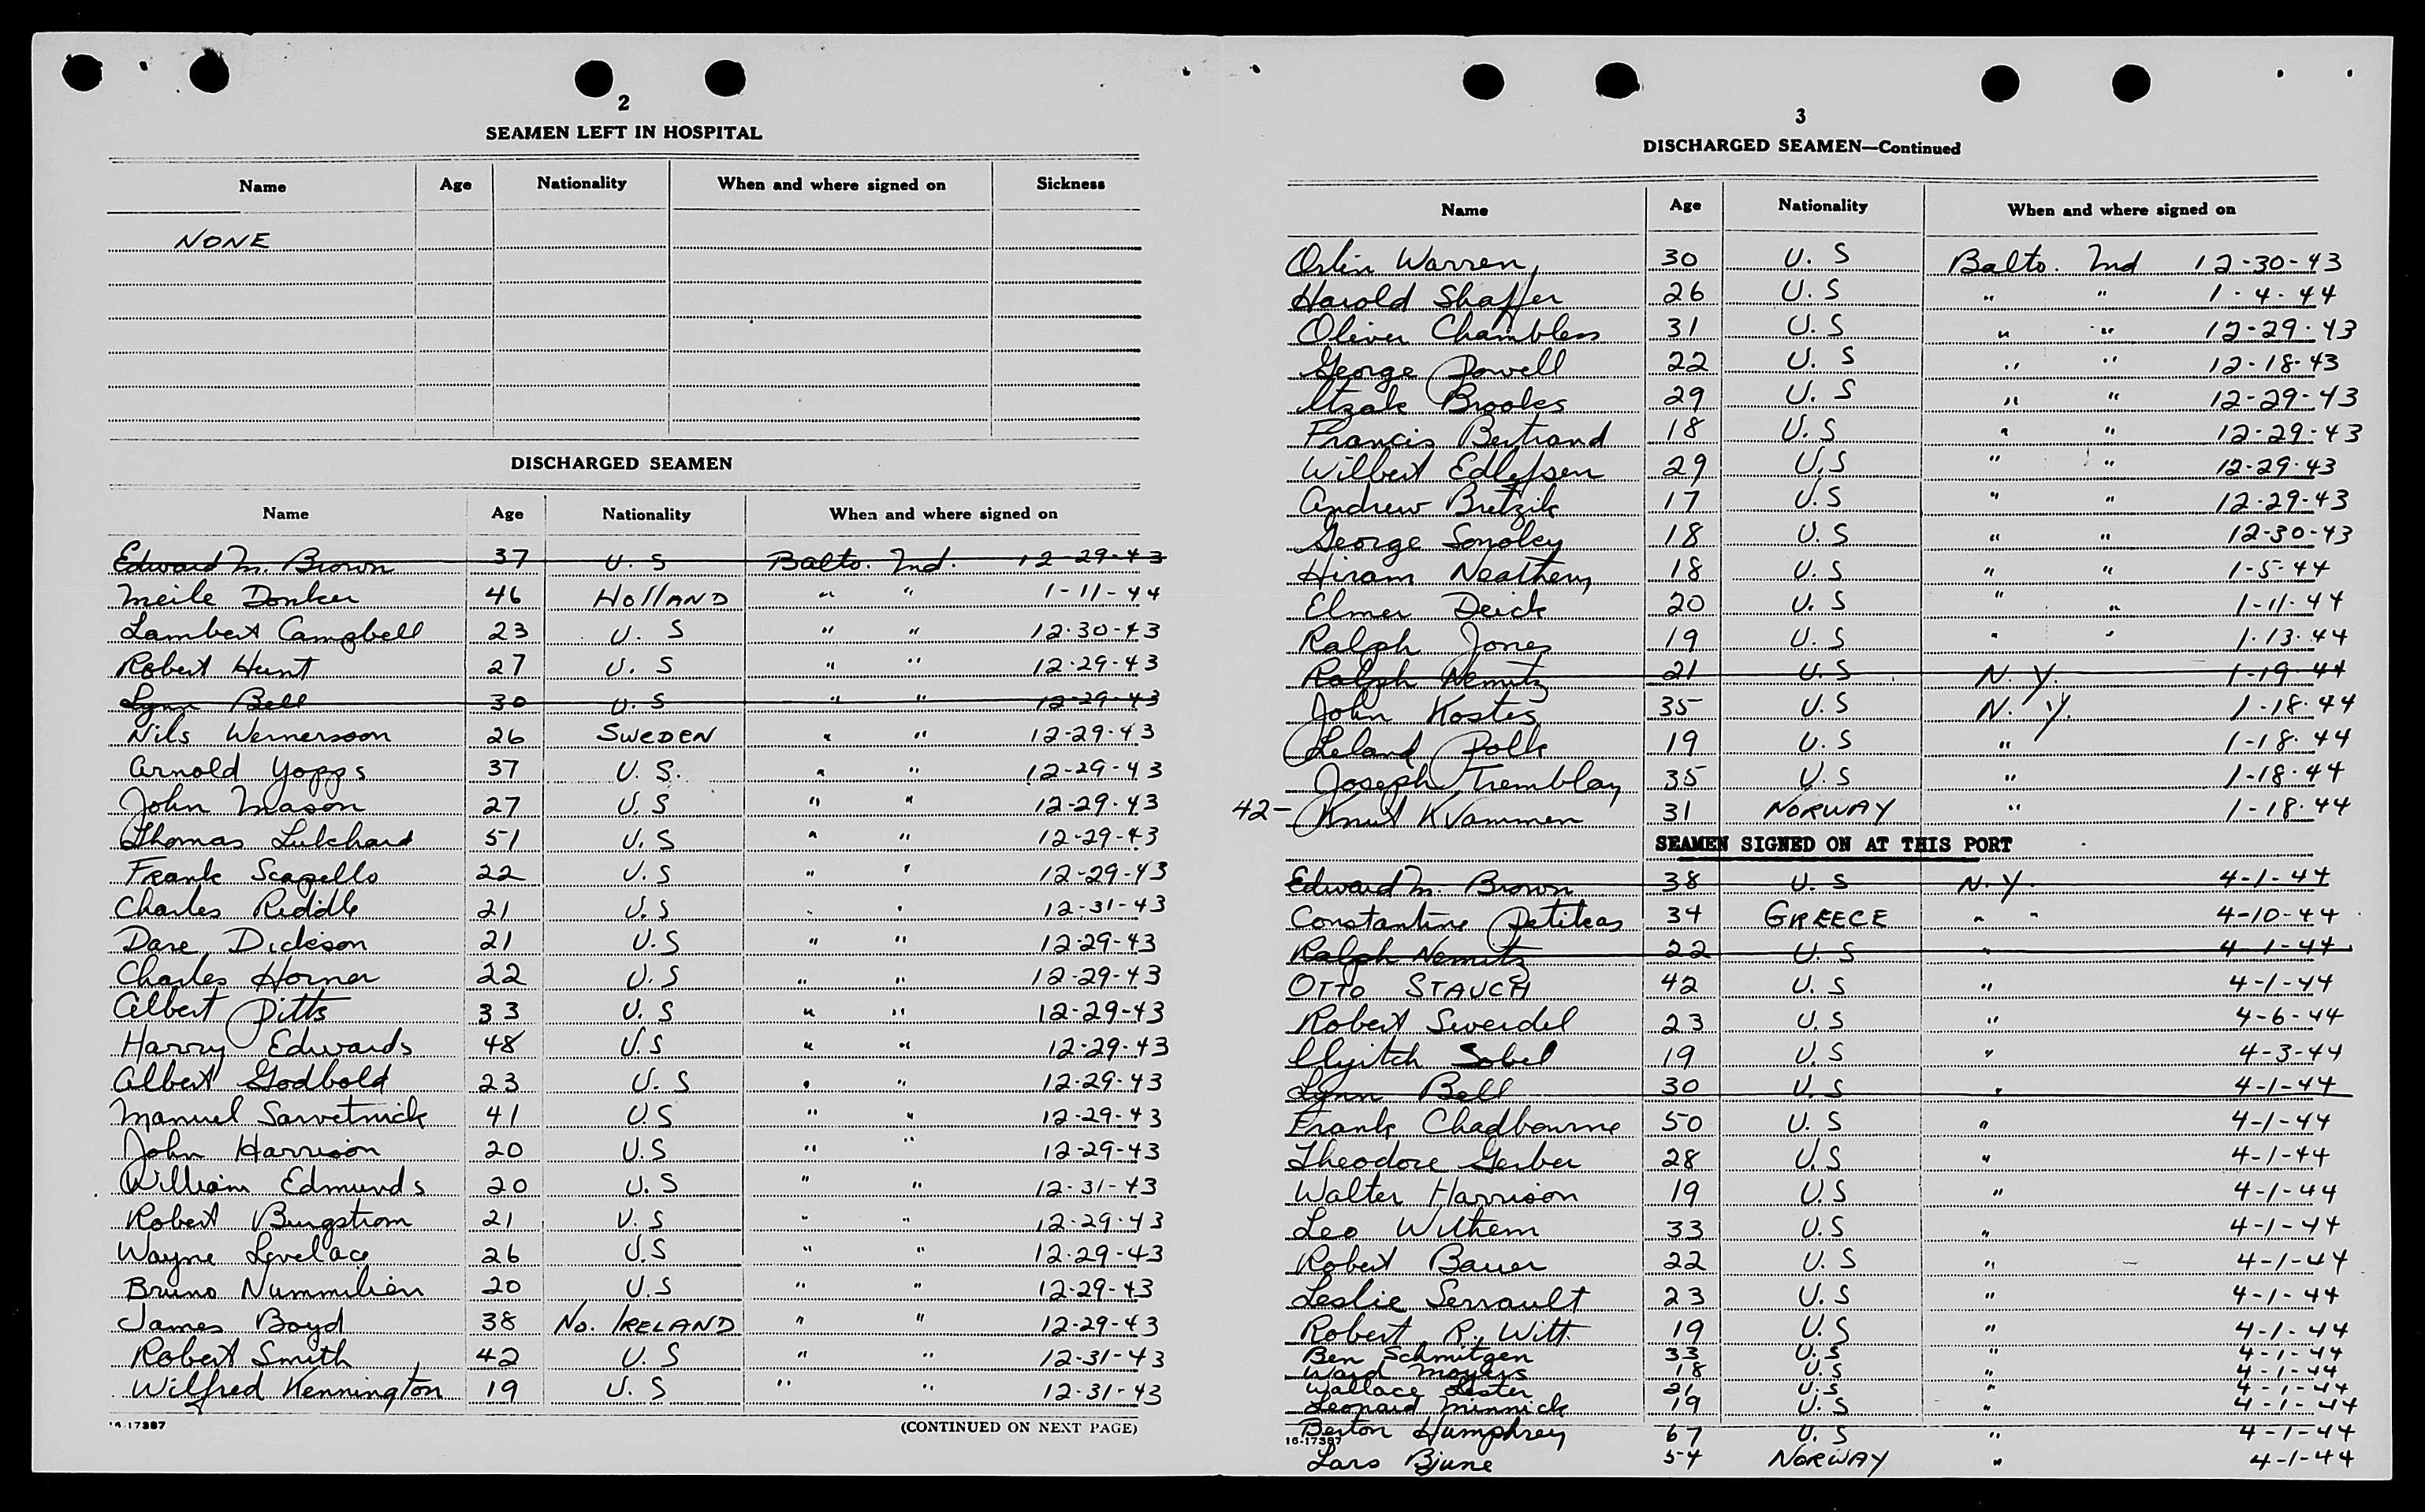 2
SEAMEN LEFT IN HOSPITAL
Name Age Nationality When and where signed on Sickness
NONE
DISCHARGED SEAMEN
Name Age Nationality When and where signed on
Edward M. Brown 37 U. S Balto. Md. 12-29-43
Meile Donker 46 HOLLAND " " 1-11-44
Lambert Campbell 23 U. S " " 12-30-43
Robert Hunt 27 U. S " " 12-29-43
Lynn Bell 30 U. S " " 12-29-43
Nils Wernersson 26 SWEDEN " " 12-29-43
Arnold Yopps 37 U. S. " " 12-29-43
John Mason 27 U. S " " 12-29-43
Thomas Lutchard 51 U. S " " 12-29-43
Frank Scapello 22 U. S " " 12-29-43
Charles Riddle 21 U. S " " 12-31-43
Dare Dickson 21 U. S " " 12-29-43
Charles Horner 22 U. S " " 12-29-43
Albert Pitts 33 U. S " " 12-29-43
Harry Edwards 48 U. S " " 12-29-43
Albert Godbold 23 U. S " " 12-29-43
Manuel Sarvetnick 41 U. S " " 12-29-43
John Harrison 20 U. S " " 12-29-43
William Edmunds 20 U. S " " 12-31-43
Robert Bergstrom 21 U. S " " 12-29-43
Wayne Lovelace 26 U. S " " 12-29-43
Bruno Nummilien 20 U. S " " 12-29-43
James Boyd 38 No. IRELAND " " 12-29-43
Robert Smith 42 U. S " " 12-31-43
Wilfred Kennington 19 U. S " " 12-31-43
16-17387 (CONTINUED ON NEXT PAGE)
3
DISCHARGED SEAMEN—Continued
Name Age Nationality When and where signed on
Orlin Warren 30 U. S Balto. Md 12-30-43
Harold Shaffer 26 U. S " " 1-4-44
Oliver Chambless 31 U. S " " 12-29-43
George Powell 22 U. S " " 12-18-43
Itzak Brooks 29 U. S " " 12-29-43
Francis Bertrand 18 U. S " " 12-29-43
Wilbert Edlefsen 29 U. S " " 12-29-43
Andrew Bretzik 17 U. S " " 12-29-43
George Smoley 18 U. S " " 12-30-43
Hiram Neathery 18 U. S " " 1-5-44
Elmer Deick 20 U. S " " 1-11-44
Ralph Jones 19 U. S " " 1-13-44
Ralph Nemitz 21 U. S N. Y. 1-19-44
John Kostes 35 U. S N. Y. 1-18-44
Leland Polk 19 U. S " 1-18-44
Joseph Tremblay 35 U. S " 1-18-44
42- Knut Kvammen 31 NORWAY " 1-18-44
SEAMEN SIGNED ON AT THIS PORT
Edward M. Brown 38 U. S N. Y. 4-1-44
Constantine Petikas 34 GREECE " " 4-10-44
Ralph Nemitz 22 U. S " 4-1-44
OTTO STAUCH 42 U. S " 4-1-44
Robert Swerdel 23 U. S " 4-6-44
Sobel 19 U. S " 4-3-44
Lynn Bell 30 U. S " 4-1-44
Frank Chadbourne 50 U. S " 4-1-44
Theodore Gerber 28 U. S " 4-1-44
Walter Harrison 19 U. S " 4-1-44
Leo Wilhem 33 U. S " 4-1-44
Robert Bauer 22 U. S " 4-1-44
Leslie Serrault 23 U. S " 4-1-44
Robert R. Witt 19 U. S " 4-1-44
Ben Schmitgen 33 U. S " 4-1-44
Ward Moyers 18 U. S " 4-1-44
Wallace Lester 21 U. S " 4-1-44
Leonard Minnick 19 U. S " 4-1-44
Berton Humphrey 67 U. S " 4-1-44
16-17387
Lars Bjune 54 NORWAY " 4-1-44